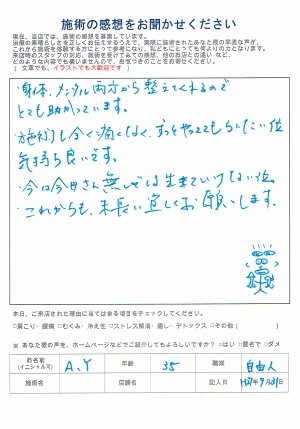 施術の感想をお聞かせください
現在、当店では、施術の感想を募集しています。
治療の素晴らしさを正しくお伝えするうえで、実際に施術されたあなた様の率直な声が、
これから施術を体験する方にとって参考になり、私どもにとっても何よりの力となります。
来店時のスタッフの対応、施術を受けてみての感想、他のお店との違い など、
どのような内容でも構いませんので、お気づきのことをお書きください。
( 文章でも、イラストでも大歓迎です )
・身体、メンタル両方から整えてくれるので
とても助かっています。
・施術も全く痛くなく、ずっとやっててもらいたい位
気持ち良いです。
・今は今日さん無しでは生きていけない位。
これからも、末長い宜しくお願いします。
本日、ご来店された理由に当てはまる項目をチェックしてください。
□肩こり・腰痛 □むくみ・冷え性 □ストレス解消・癒し・デトックス □その他( )
※ あなた様の声を、ホームページなどでご紹介してもよろしいですか? □はい □匿名で □ダメ
お名前 (イニシャル可) A.Y 年齢 35 職業 自由人
施術名 店舗名 記入日 H27年9月21日